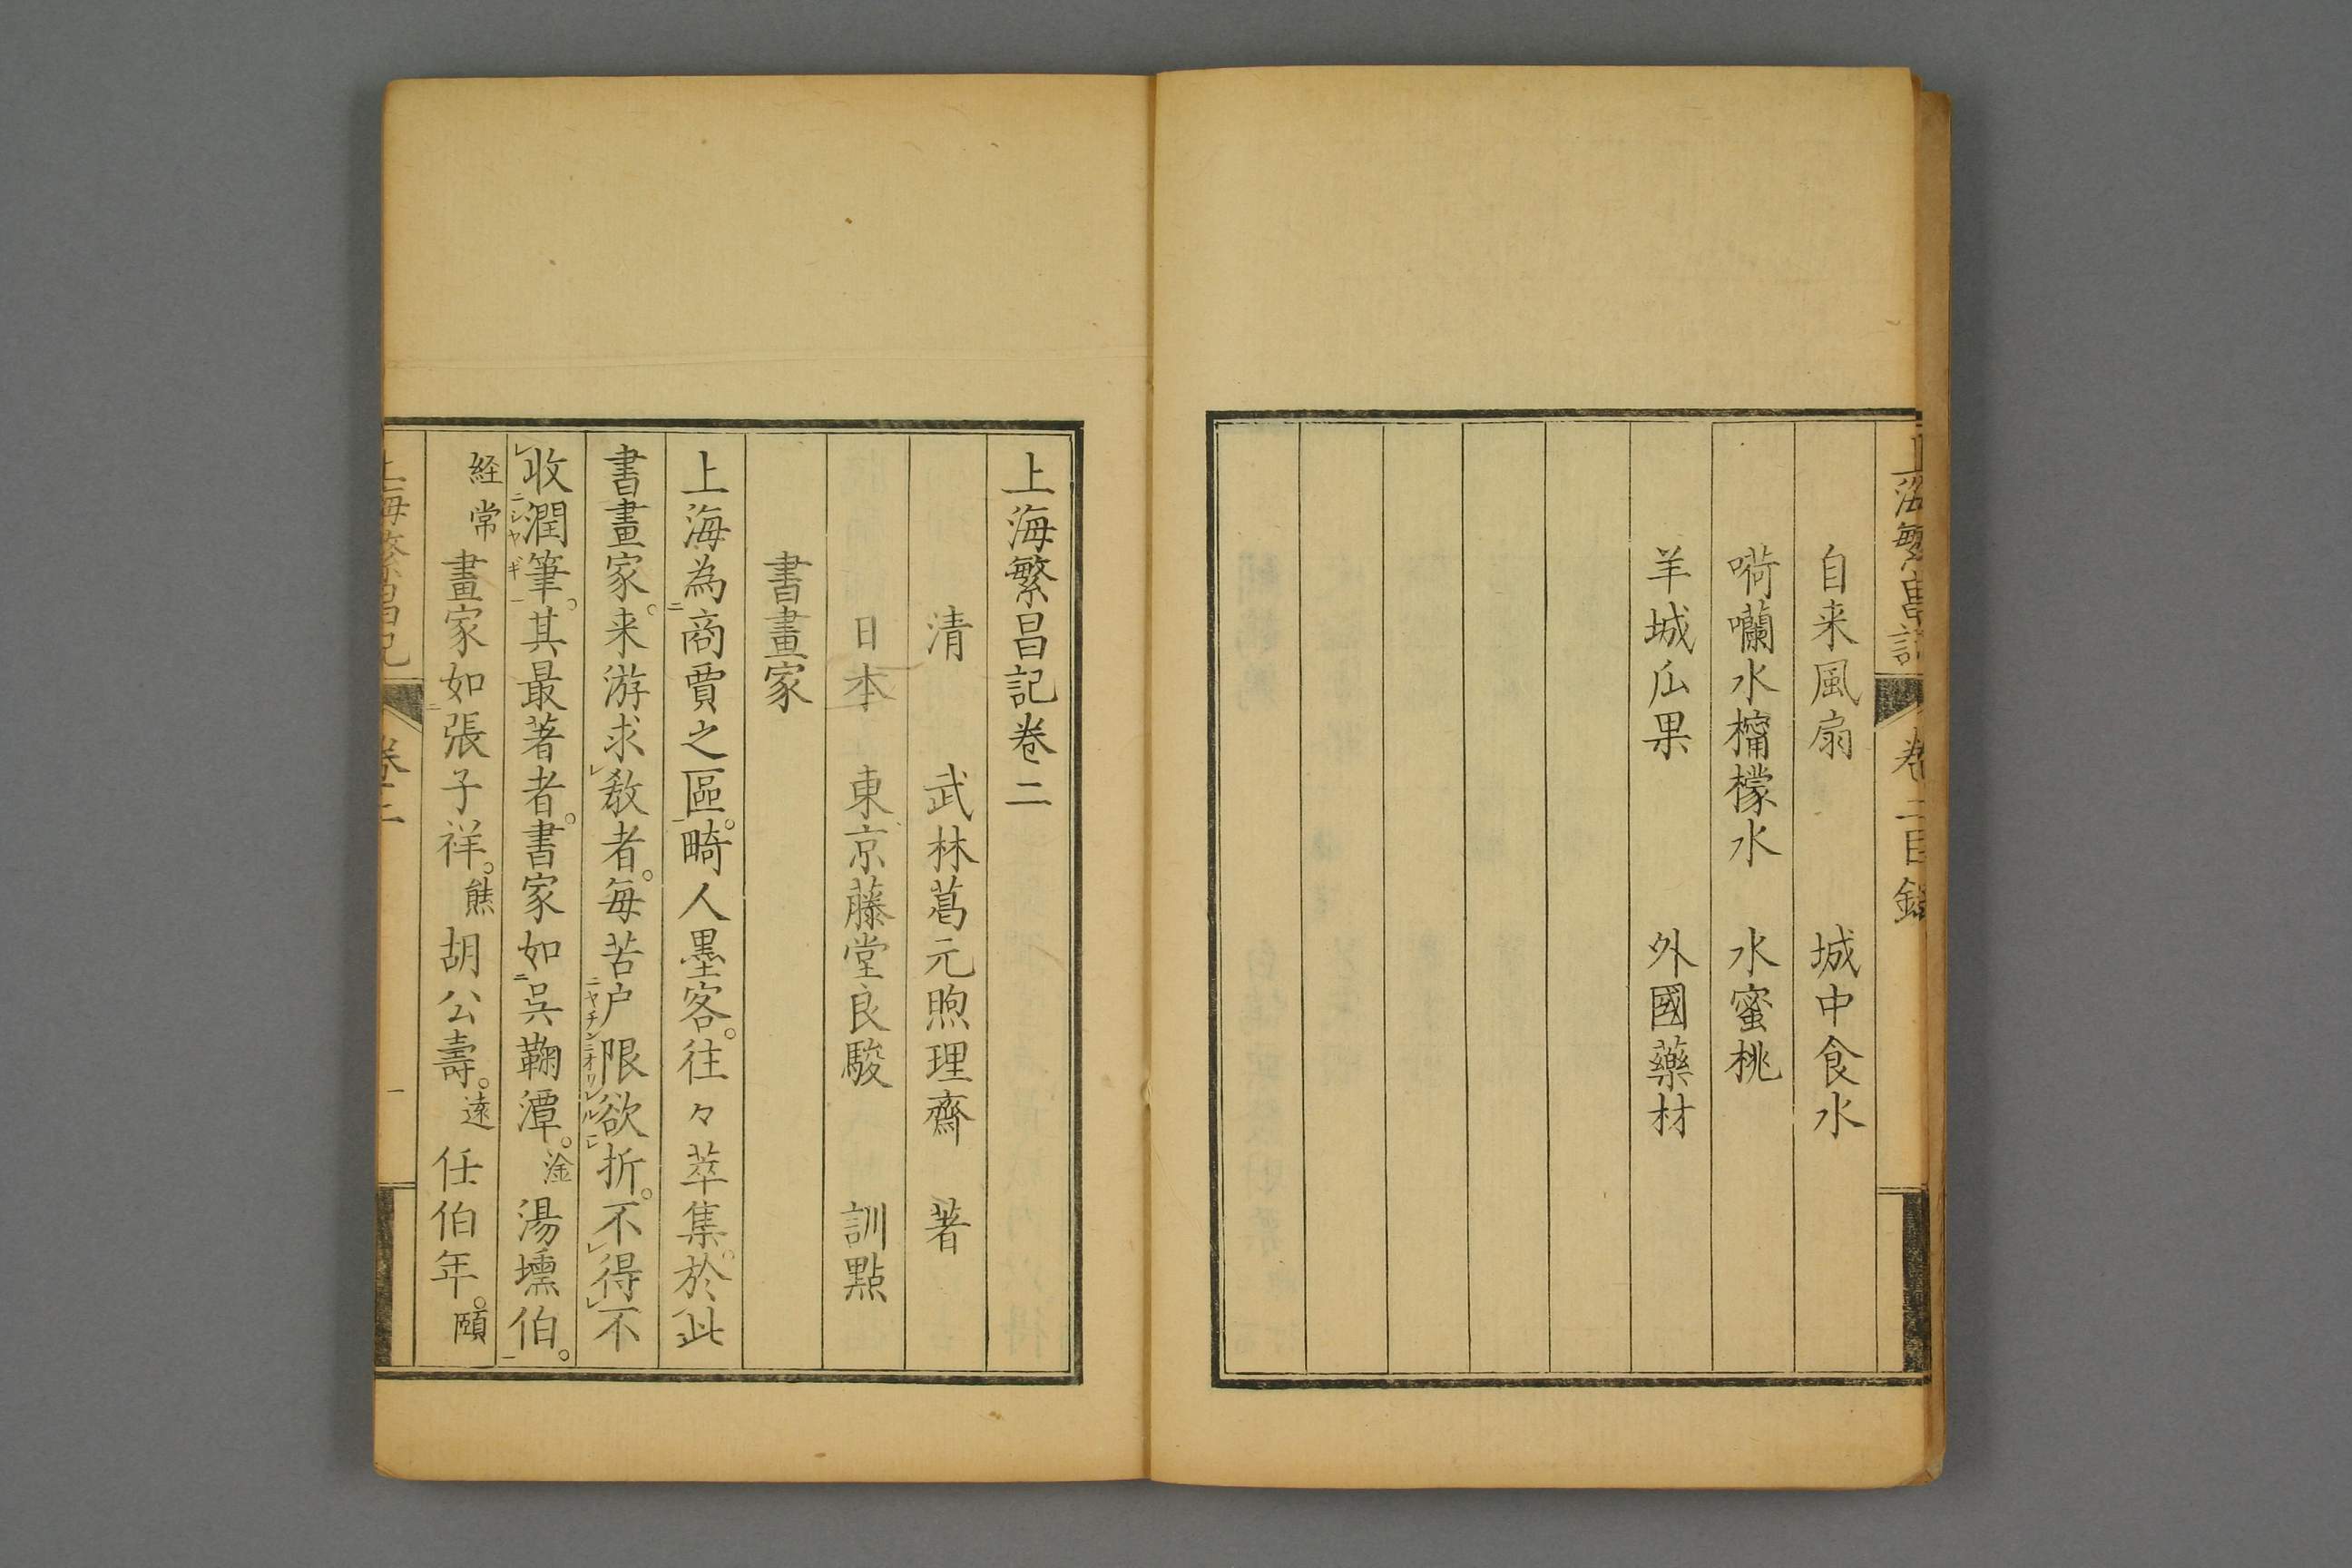 上海繁昌記 卷二目錄
自来風扇 城中食水
嗬囒水檸檬水 水蜜桃
羊城瓜果 外國藥材
上海繁昌記卷二
清 武林葛元煦理齋 著
日本 東京藤堂良駿 訓點
書畫家
上海為商賈之區。畸人墨客。往々萃集。於此
書畫家。来游求敎者。每苦户限欲折。不得不
收潤筆。其最著者。書家如吳鞠潭。淦湯壎伯。
経常畫家如張子祥。熊胡公壽。遠任伯年。頤
上海繁昌記 卷二 一